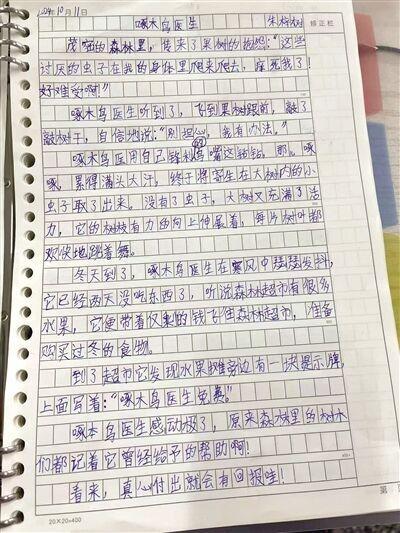 2024年10月11日
啄木鸟医生 朱梓树 修正栏
茂密的森林里，传来了果树的抱怨："这些
讨厌的虫子在我的身体里爬来爬去，痒死我了！
好难受啊！"
啄木鸟医生听到了，飞到果树跟前，敲了
敲树干，自信地说："别担心，我有办法。"
啄木鸟医用自己锋利的嘴这钻钻，那
啄，累得满头大汗，终于将寄生在大树内的小
虫子取了出来。没有了虫子，大树又充满了活
力，它的树枝有力的向上伸展着，每片树叶都
欢快地跳着舞。
冬天到了，啄木鸟医生在寒风中瑟瑟发抖，
它已经两天没吃东西了，听说森林超市有很多
水果，它便带着仅剩的钱飞往森林超市，准备
购买过冬的食物。
到了超市它发现水果摊旁边有一块提示牌，
上面写着："啄木鸟医生免费。"
啄木鸟医生感动极了，原来森林里的树木
们都记着它曾经给予的帮助啊！
看来，真心付出就会有回报哇！
20×20=400 第